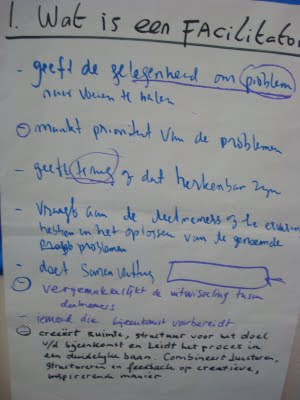 1. Wat is een FAcilitator
- geeft de gelegenheid om problem
naar voren te halen
- maakt prioriteit van de problemen
- geeft terug of dat herkenbaar zijn
- vraagt aan de deelnemers of ze
hebben in het oplossen van de genoemde
problemen
- doet samenvatting
- vergemakkelijkt de uitwisseling tussen
deelnemers
- iemand die bijeenkomst voorbereidt
- creëert ruimte, structuur voor het doel
v/d bijeenkomst en leidt het proces in
een duidelijke baan. Combineert luisteren,
structureren en feedback op creatieve,
inspirerende manier